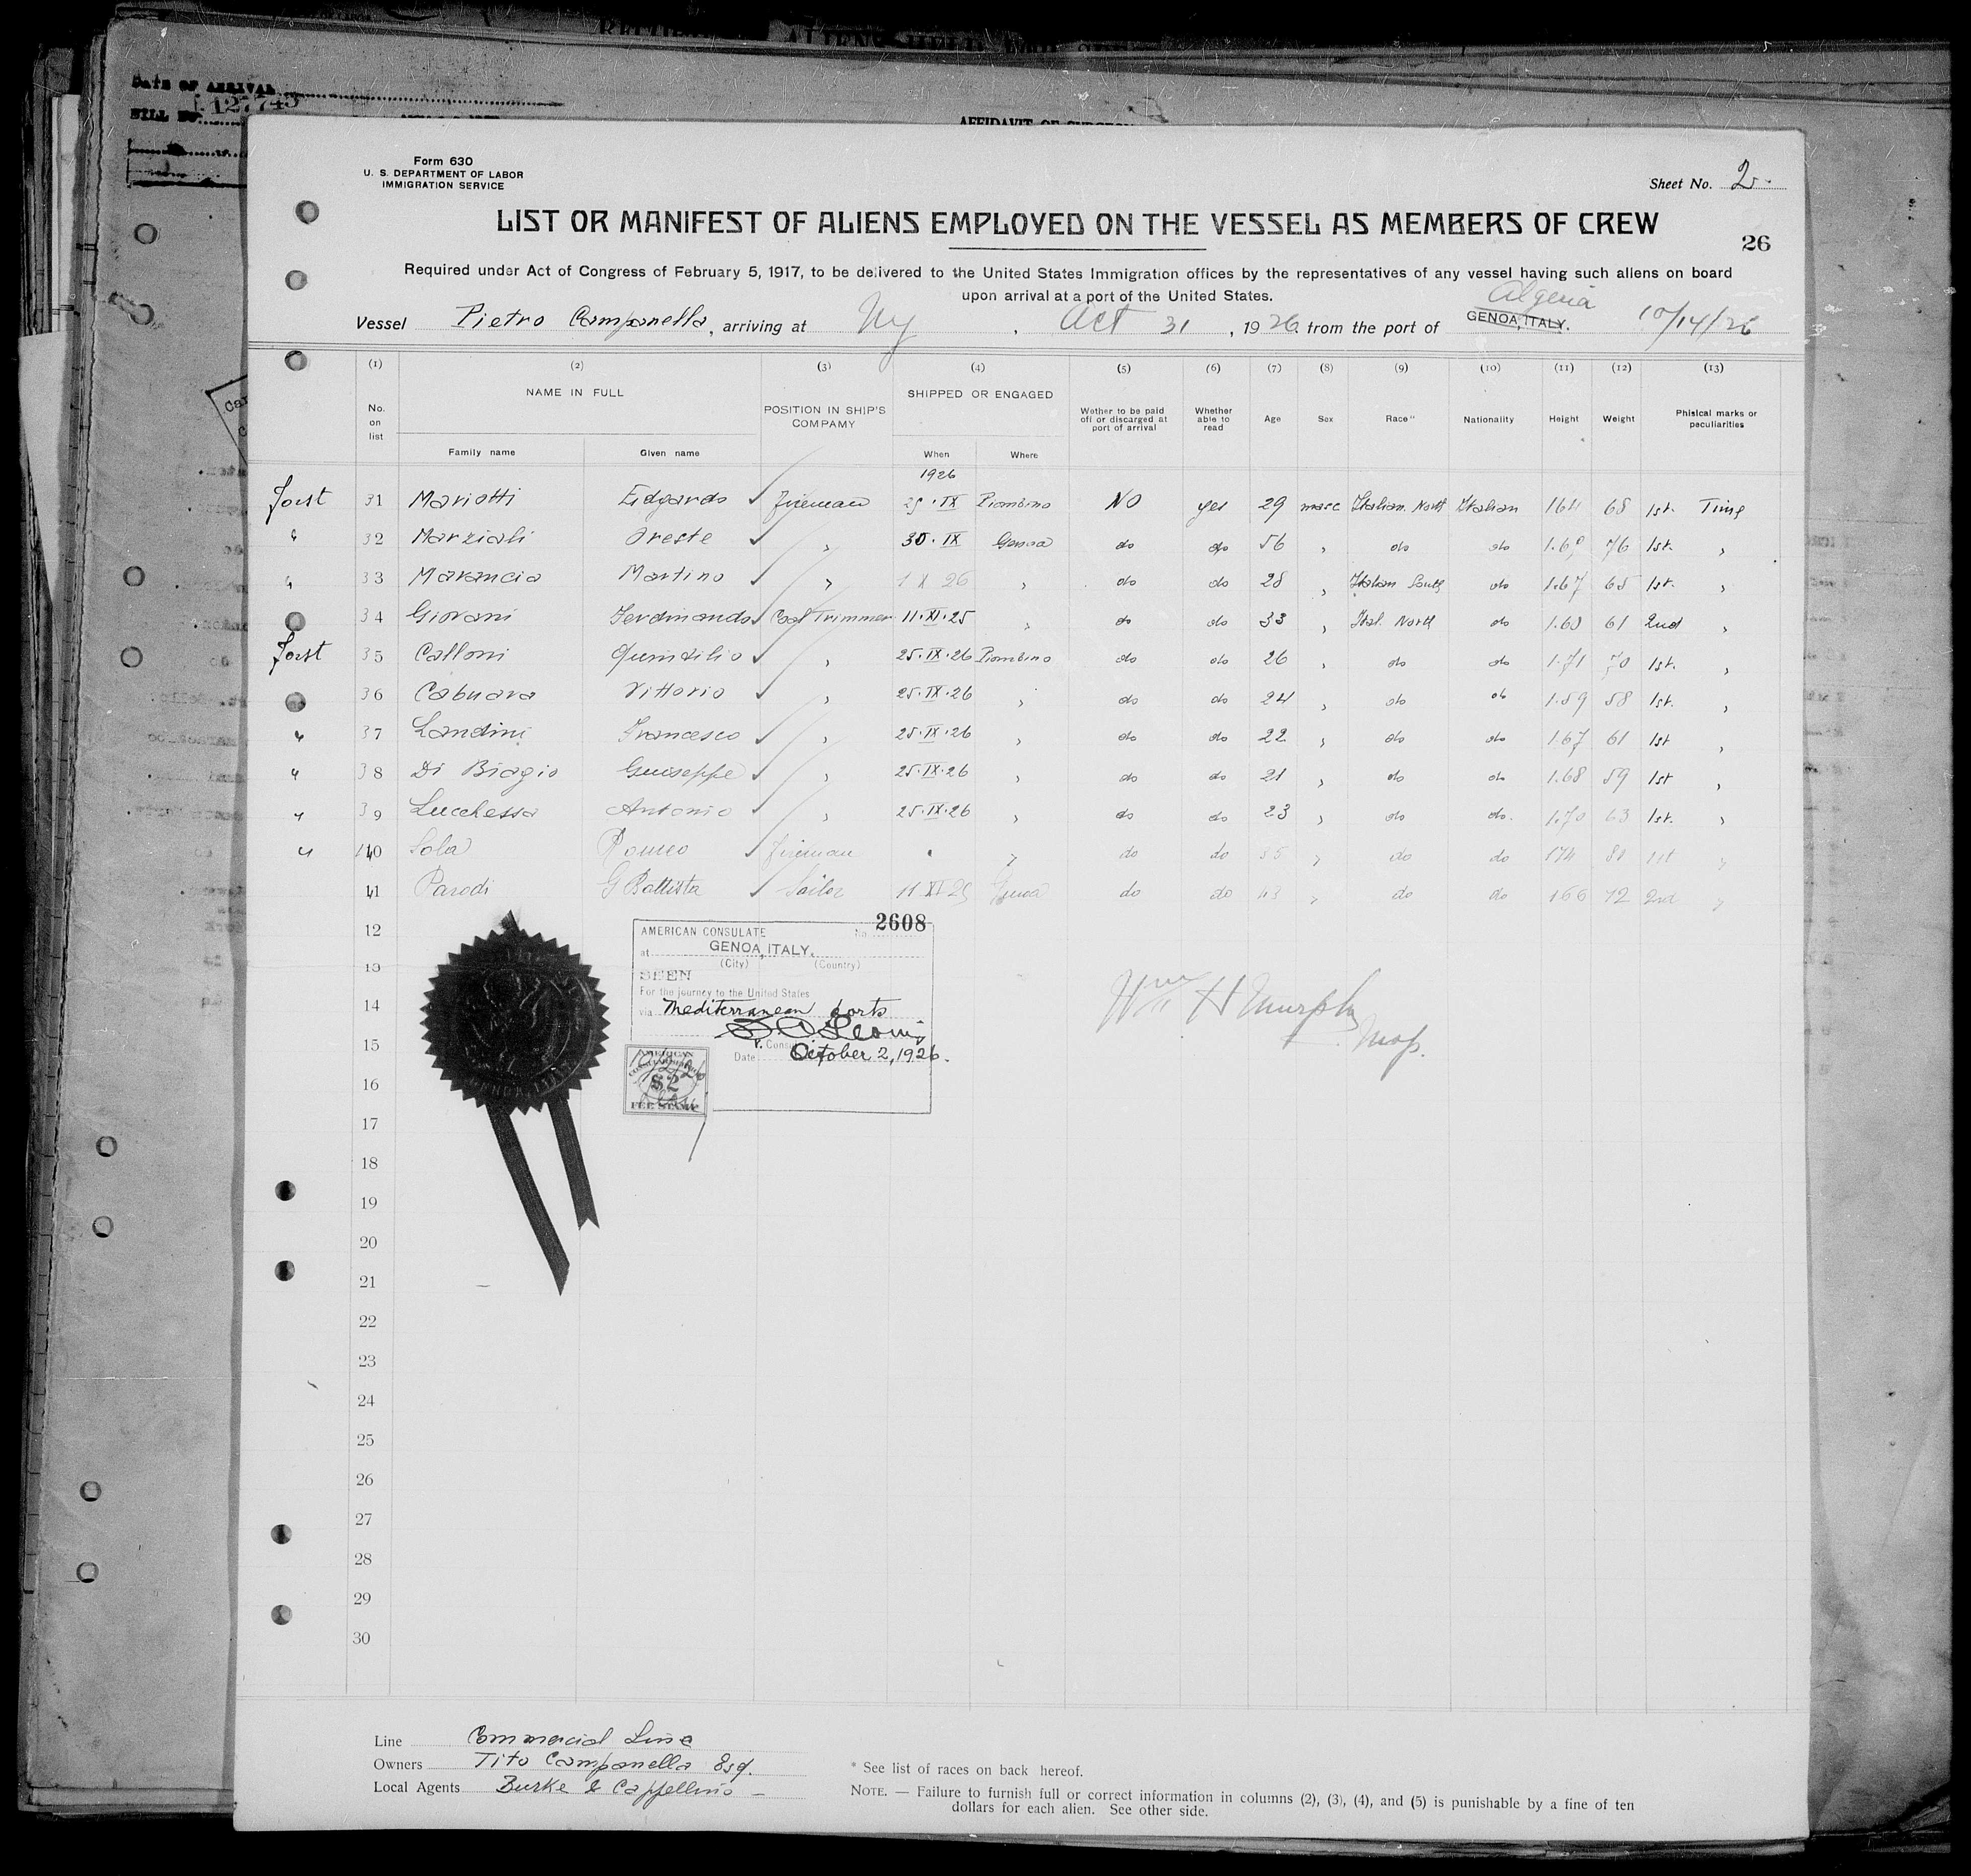 DATE OF ARRIVAL
127745
BILL NO.
AFFIDAVIT OF SURGEON
Form 630
U. S. DEPARTMENT OF LABOR
IMMIGRATION SERVICE
Sheet No. 2
LIST OR MANIFEST OF ALIENS EMPLOYED ON THE VESSEL AS MEMBERS OF CREW
26
Required under Act of Congress of February 5, 1917, to be delivered to the United States Immigration offices by the representatives of any vessel having such aliens on board
upon arrival at a port of the United States.
Algeria
Vessel Pietro Campanella, arriving at Ny, Oct 31, 1926 from the port of GENOA, ITALY. 10/14/26
(1) (2) (3) (4) (5) (6) (7) (8) (9) (10) (11) (12) (13)
No. on list NAME IN FULL POSITION IN SHIP'S COMPAMY SHIPPED OR ENGAGED Wether to be paid off or discarged at port of arrival Whether able to read Age Sex Race* Nationality Height Weight Phisical marks or peculiarities
Family name Given name When Where
1926
31 Mariotti Edgardo fireman 25·IX Piombino NO yes 29 masc Italian North Italian 164 68 1st. Time
32 Marziali Oreste " 30·IX Genoa do do 56 " do do 76 1st. "
33 Martino " 1 X 26 " do do 28 " Italian South do 1.67 65 1st. "
34 Giovani Ferdinando Coal Trimmer 11·XI·25 " do do 33 " Ital. North do 61 2nd "
35 Calloni Quintilio " 25·IX·26 Piombino do do 26 " do do 1.71 70 1st. "
36 Vittorio " 25·IX·26 " do do 24 " do do 1.59 58 1st. "
37 Landini Francesco " 25·IX·26 " do do 22 " do do 1.67 61 1st "
38 Di Biagio Guiseppe " 25·IX·26 " do do 21 " do do 1.68 59 1st "
39 Lucchessa Antonio " 25·IX·26 " do do 23 " do do. 1.70 63 1st. "
40 Sola Romeo fireman " " do do 35 " do do 174 1st "
41 Parodi G Battista Sailor 11 XI 25 Genoa do do 43 " do do 166 72 2nd "
12
13
14
15
16
17
18
19
20
21
22
23
24
25
26
27
28
29
30
AMERICAN CONSULATE No. 2608
at GENOA, ITALY.
(City) (Country)
SEEN
For the journey to the United States
via Mediterranean ports
V. Consul
Date October 2, 1926.
AMERICAN
$2
FEE STAMP
Wm H Murphy
Line Commercial Line
Owners Tito Campanella Esq.
Local Agents Burke & Cappellino
* See list of races on back hereof.
NOTE. — Failure to furnish full or correct information in columns (2), (3), (4), and (5) is punishable by a fine of ten
dollars for each alien. See other side.